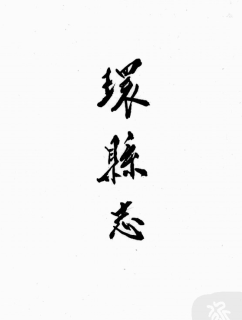 環縣志